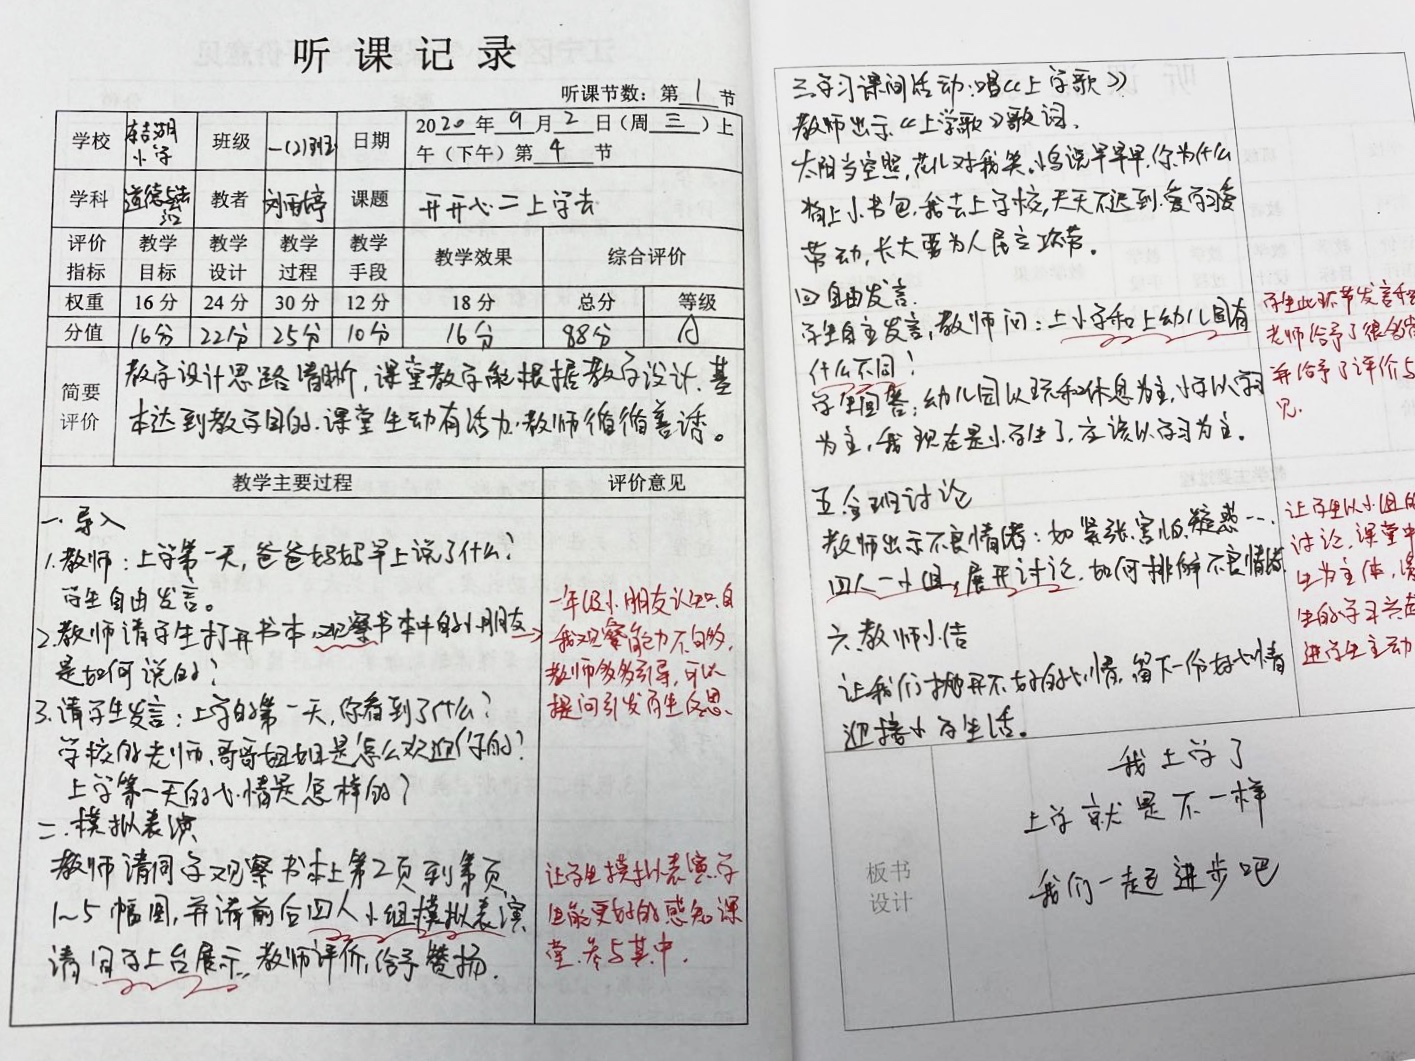 听课记录
听课节数：第1节
学校 小学 班级 一(2)班 日期 2020年9月2日（周三）上午（下午）第4节
学科 道德与法治 教者 刘雨婷 课题 开开心心上学去
评价指标 教学目标 教学设计 教学过程 教学手段 教学效果 综合评价
权重 16分 24分 30分 12分 18分 总分 等级
分值 16分 22分 25分 10分 16分 88分 A
简要评价 教学设计思路清晰，课堂教学能根据教学设计，基
本达到教学目的。课堂生动有活力，教师循循善诱。
教学主要过程 评价意见
一、导入
1.教师：上学第一天，爸爸妈妈早上说了什么？
学生自由发言。
2.教师请学生打开书本，观察书本中的小朋友
是如何说的？
3.请学生发言：上学的第一天，你看到了什么？
学校的老师、哥哥姐姐是怎么欢迎你的？
上学第一天的心情是怎样的？
二、模拟表演
教师请同学观察书本上第2页到第页
1~5幅图，并请前台四人小组模拟表演
请同学上台展示，教师评价，给予赞扬。
一年级小朋友认知自
我观察能力不够，
教师多多引导，可以
提问引发学生反思。
让学生模拟表演，学
生能更好的感知课
堂，参与其中。
三、学习课间活动：唱《上学歌》
教师出示《上学歌》歌词。
太阳当空照，花儿对我笑，小鸟说早早早，你为什么
背上小书包，我去上学校，天天不迟到，爱学习爱
劳动，长大要为人民立功劳。
四、自由发言。
学生自主发言，教师问：上小学和上幼儿园有
什么不同？
学生回答：幼儿园以玩和休息为主，小学以学习
为主，我现在是小学生了，应该以学习为主。
五、全班讨论
教师出示不良情绪：如紧张、害怕、疑惑……
四人一小组，展开讨论，如何排解不良情绪
六、教师小结
让我们抛开不好的心情，留下一份好心情
迎接小学生活。
学生此环节发言积
老师给予了很多
并给予了评价与
见。
让学生以小组的
讨论，课堂中
生为主体，
生的学习兴
进学生主动
板书设计
我上学了
上学就是不一样
我们一起进步吧